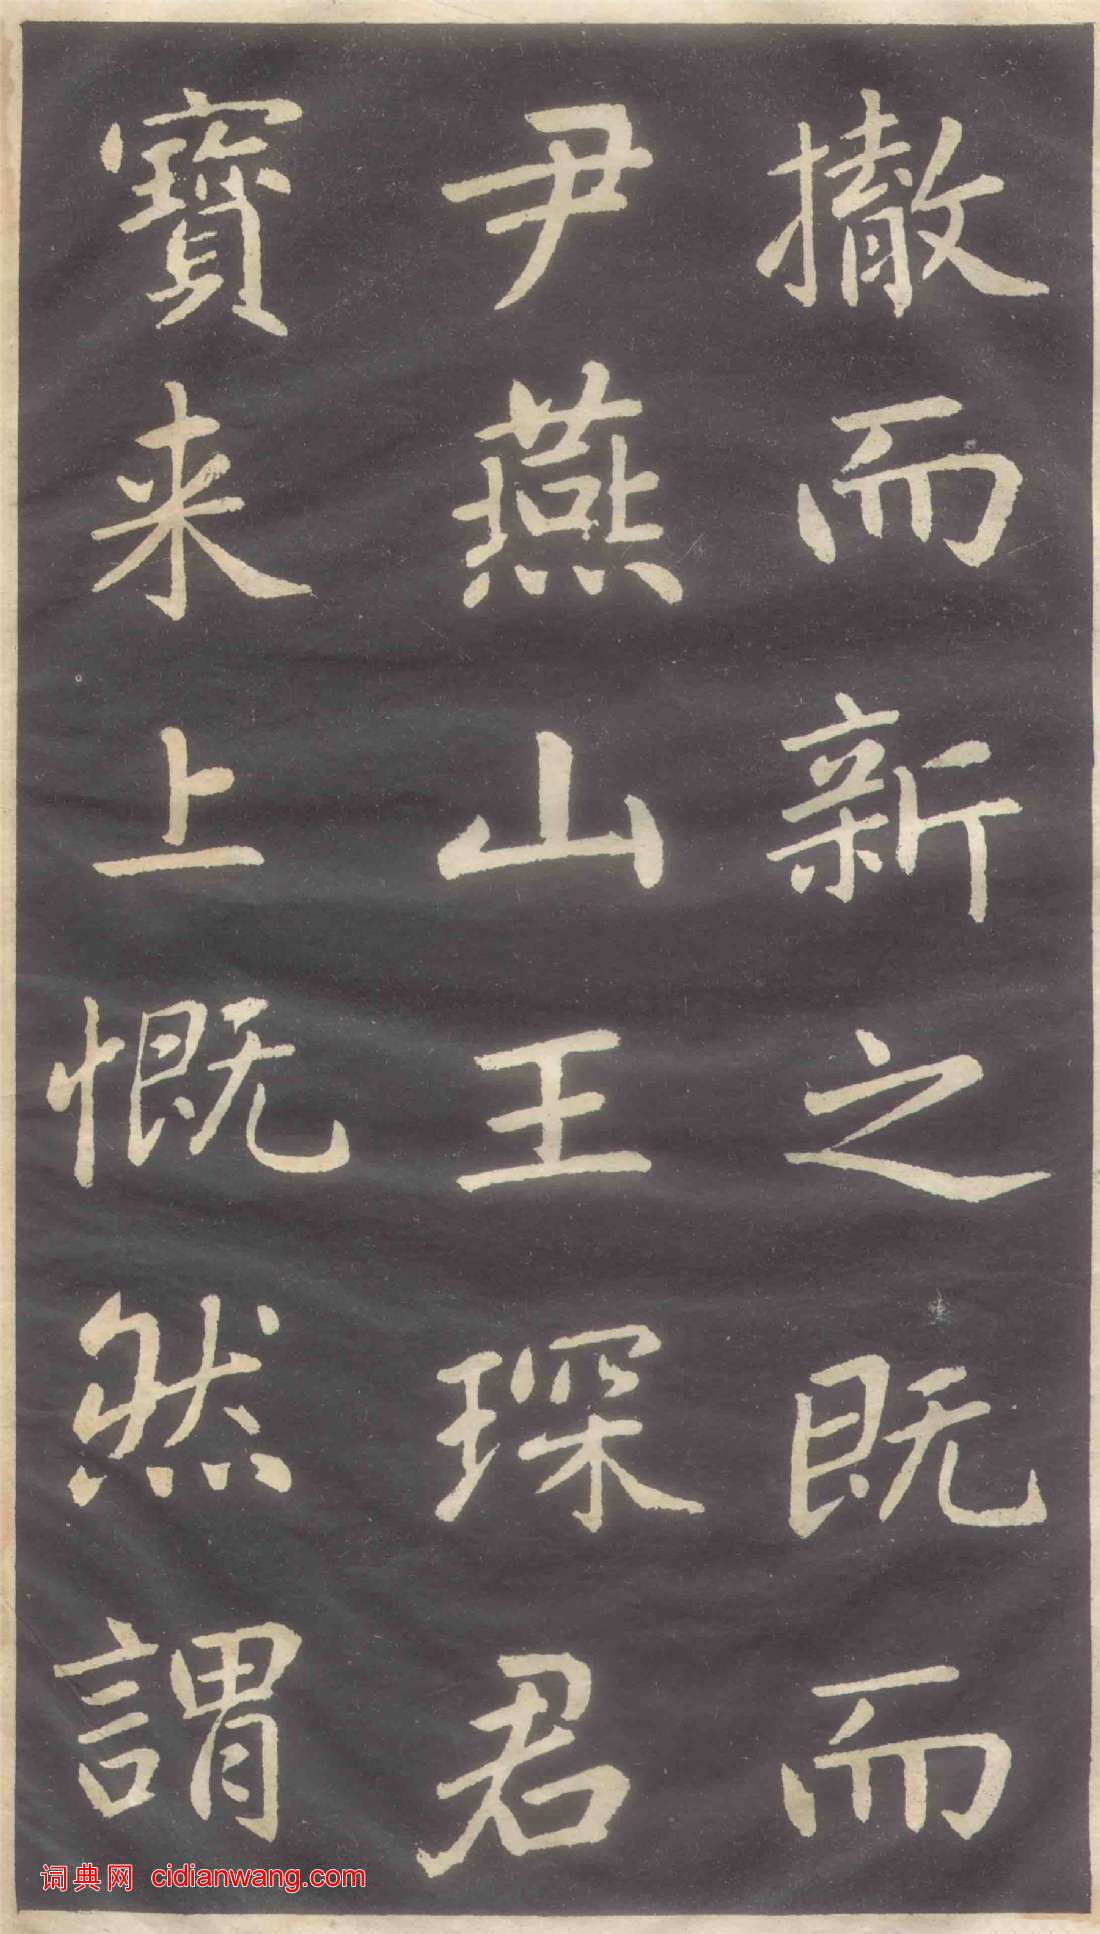 撤而新之既而
尹燕山王琛君
寶来上慨然謂
词典网 cidianwang.com